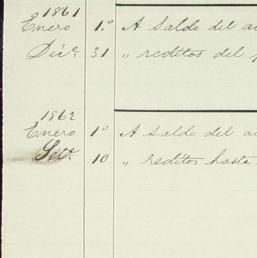 1861
Enero 1.º A Saldo del
Dic.e 31 „ reditos del
1862
Enero 1º A Saldo del
Set.e 10 „ reditos hasta